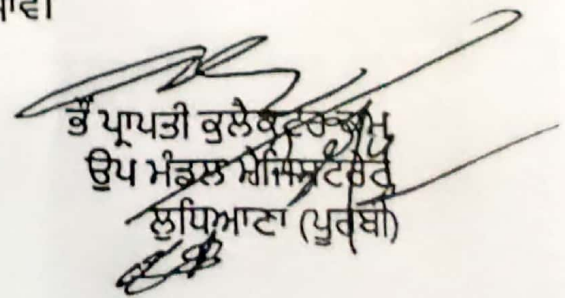 ਭੌਂ ਪ੍ਰਾਪਤੀ ਕੁਲੈਕਟਰ-ਕਮ
ਉਪ ਮੰਡਲ ਮੈਜਿਸਟਰੇਟ
ਲੁਧਿਆਣਾ (ਪੂਰਬੀ)